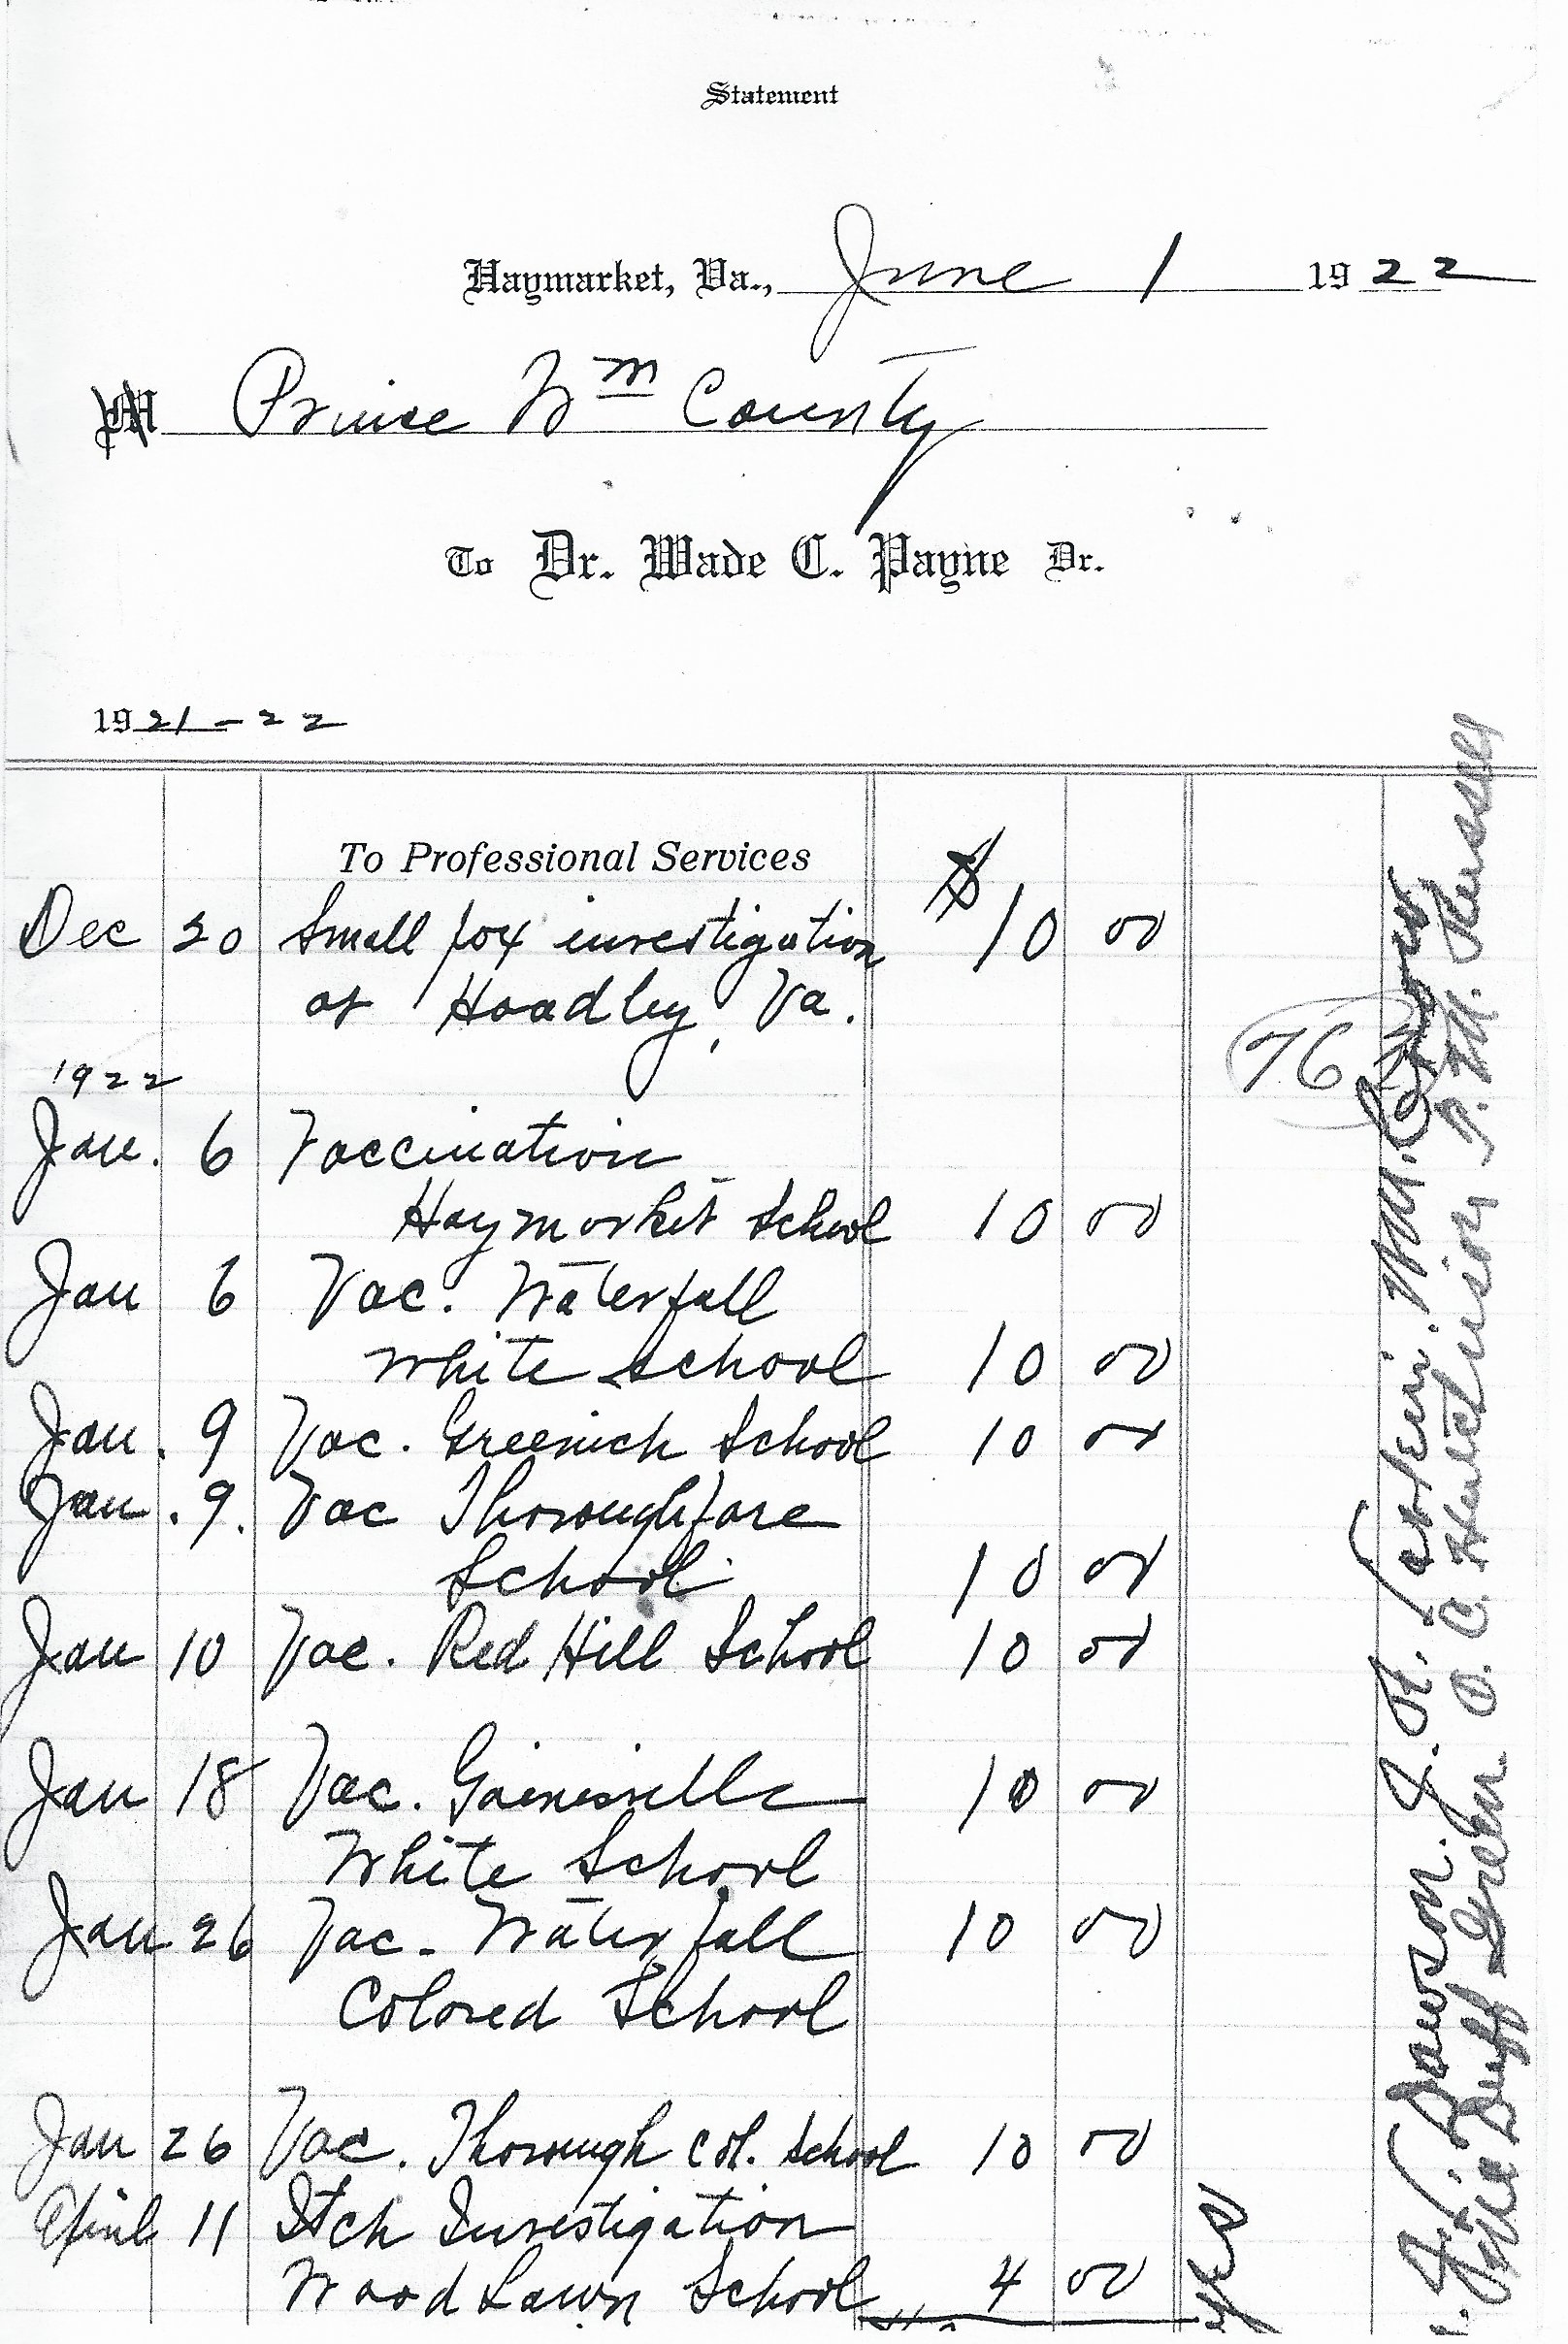 Statement
Haymarket, Va., June 1 1922
M Prince Wm County
To Dr. Wade C. Payne Dr.
1921-22
To Professional Services $
Dec 20 Small pox investigation 10 00
at Hoadley, Va.
1922
Jan. 6 Vaccination
Haymarket School 10 00
Jan 6 Vac. Waterfall
White School 10 00
Jan. 9 Vac. Greenwich School 10 00
Jan. 9. Vac Thoroughfare
School 10 00
Jan 10 Vac. Red Hill School 10 00
Jan 18 Vac. Gainesville 10 00
White School
Jan 26 Vac. Waterfall 10 00
Colored School
Jan 26 Vac. Thorough col. School 10 00
April 11 Itch Investigation
Wood Lawn School 4 00
76
Dawson. J. H. McCrow
McDuff Green O. C. Hutchison P. M. Russell